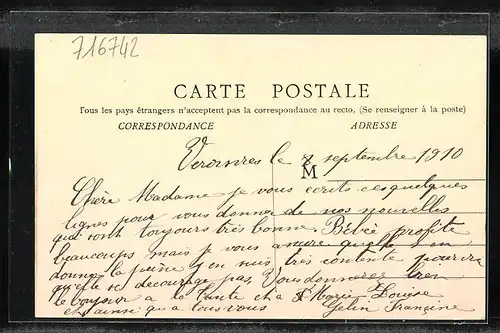 716742
CARTE POSTALE
Tous les pays étrangers n'acceptent pas la correspondance au recto. (Se renseigner à la poste)
CORRESPONDANCE ADRESSE
le 8 septembre 1910
M
Chère Madame je vous écrits ces quelques
lignes pour vous donner de nos nouvelles
qui sont toujours très bonne. Bébée profite
beaucoups mais je vous
donne la peine en suis très contente pourvu
qu'elle se décourage pas. Vous donnerez bien
le bonjour a la tante et a Marie Louise
et ainsi qu a tous vous Gelin Francine